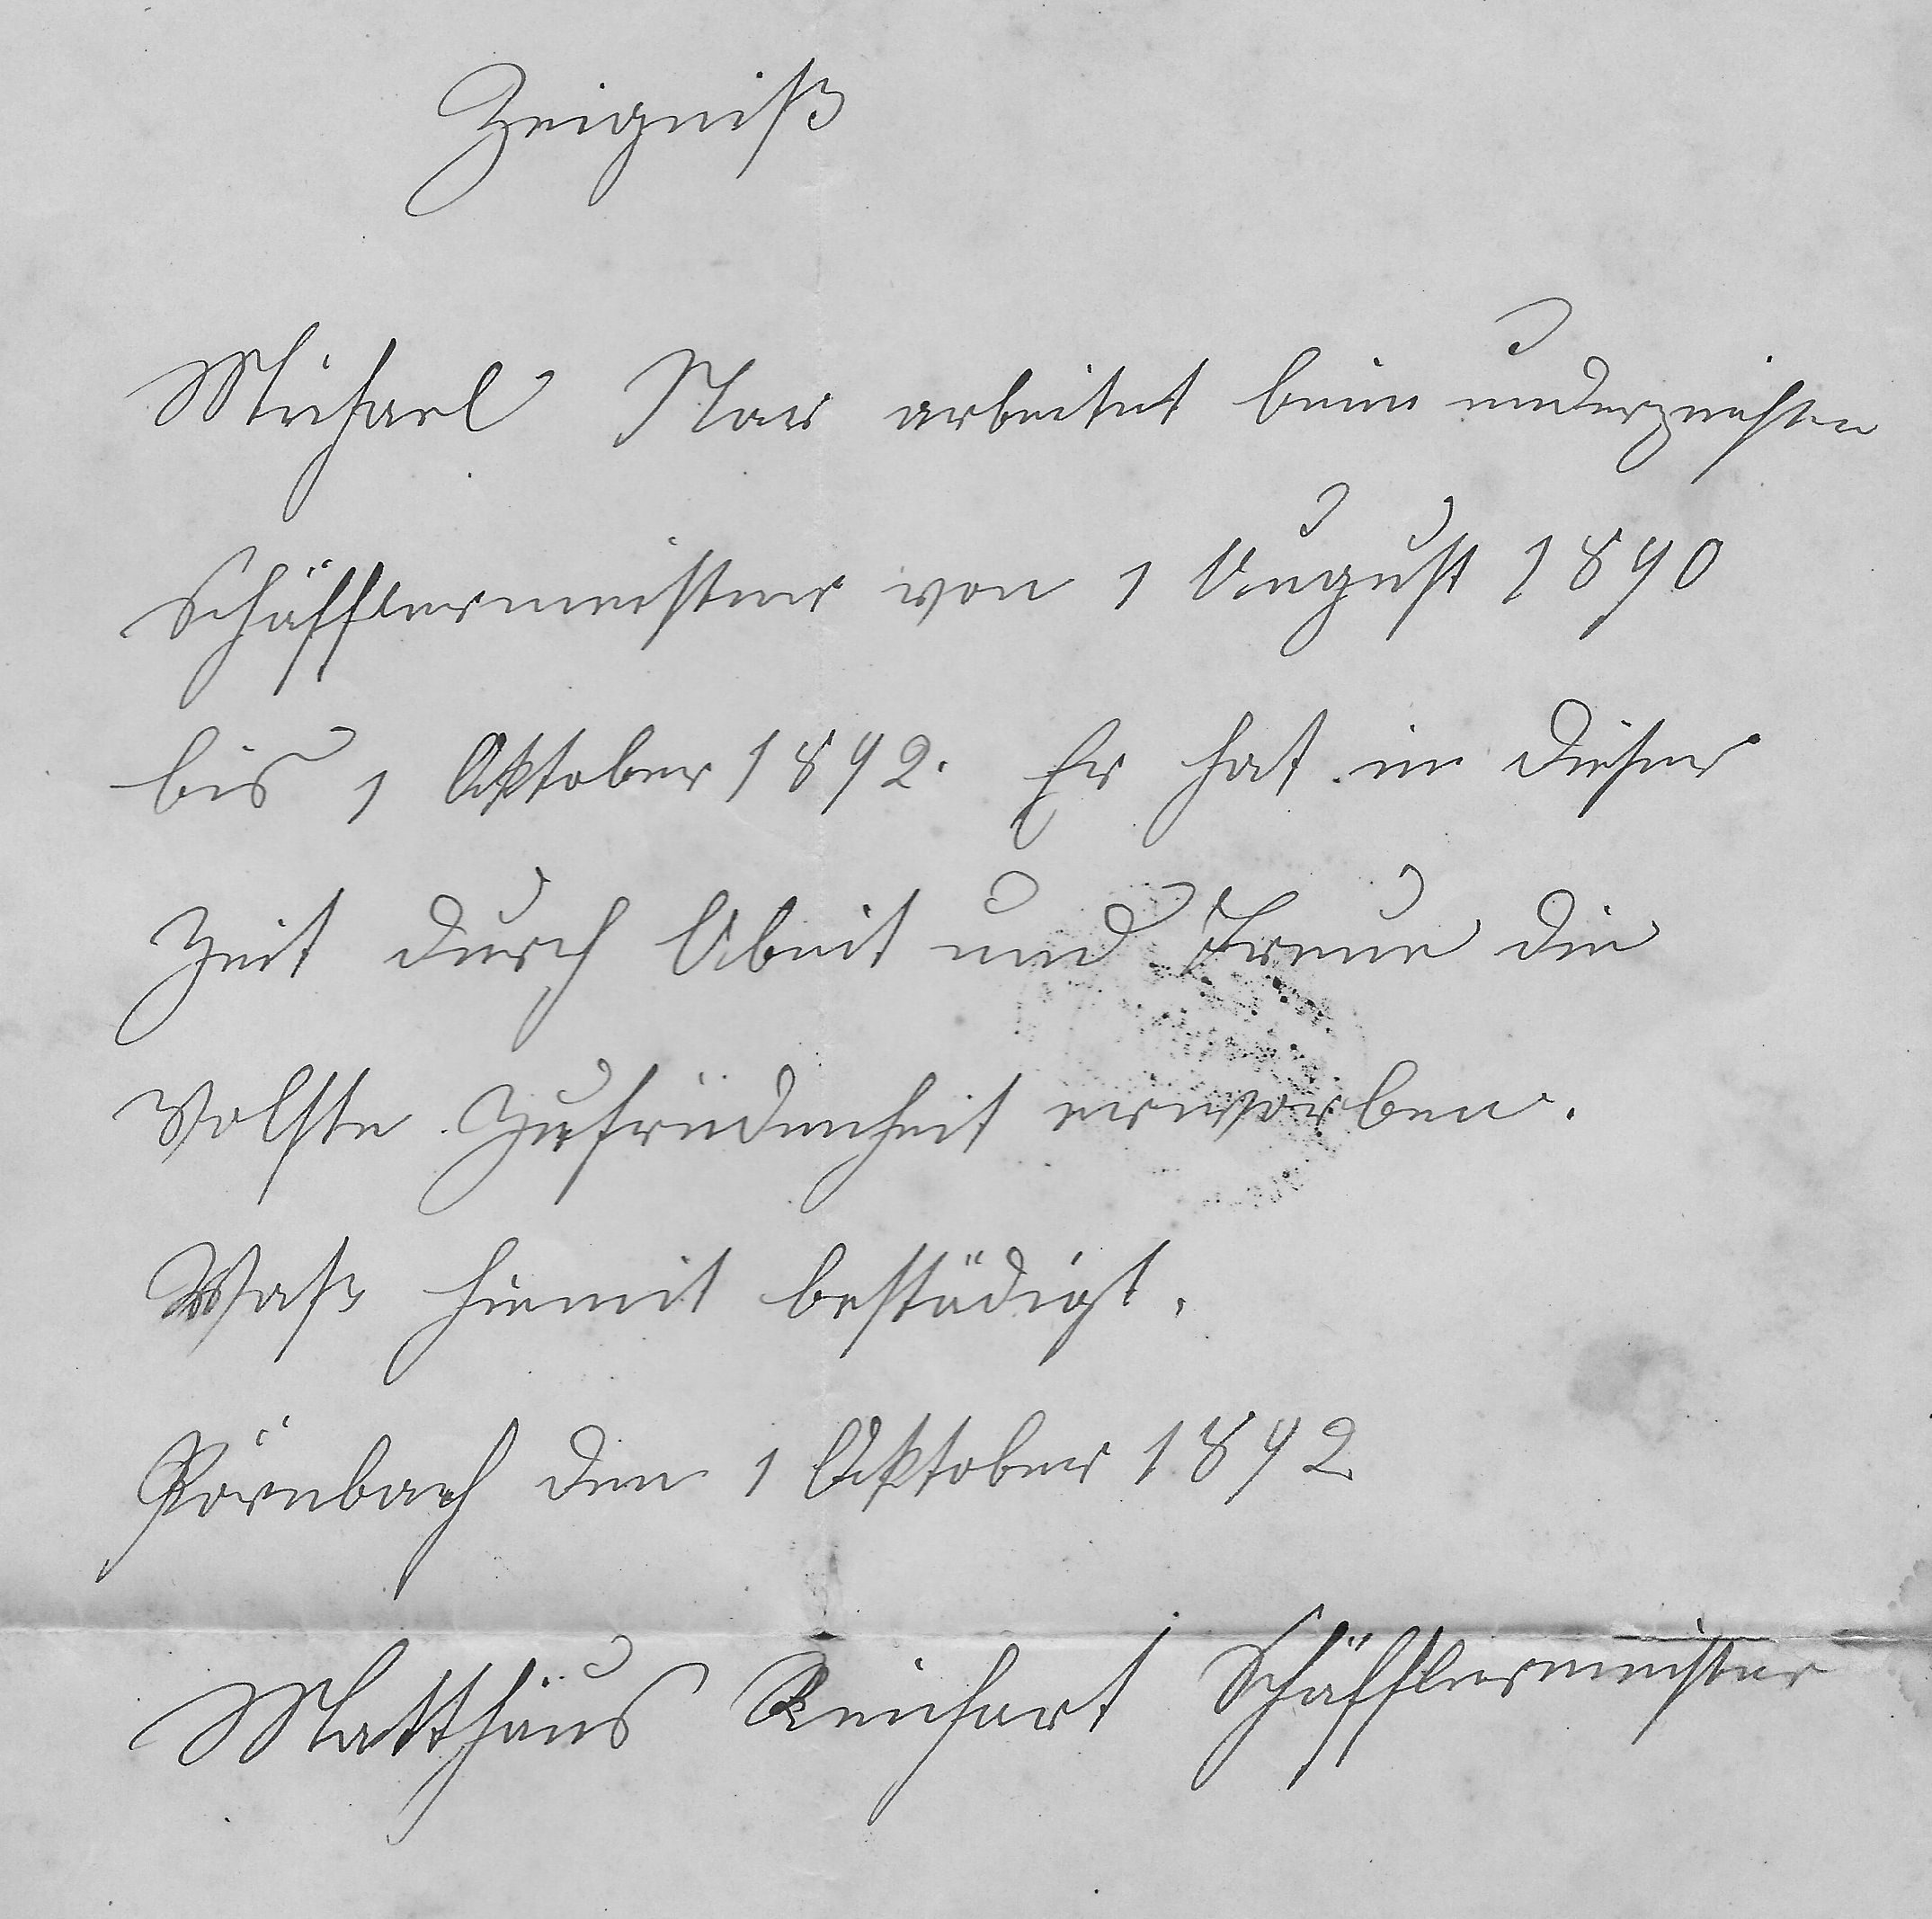 Zeigniß
Michael arbeitet beim underzeichten
Schäfflermeister von 1 August 1890
bis 1 Oktober 1892. Er hat in dieser
Zeit durch Abeit und Treue die
Volste Zufriedenheit erworben.
Waß hiemit bestädigt.
Pörnbach den 1 Oktober 1892
Matthäus Reichart Schäfflermeister